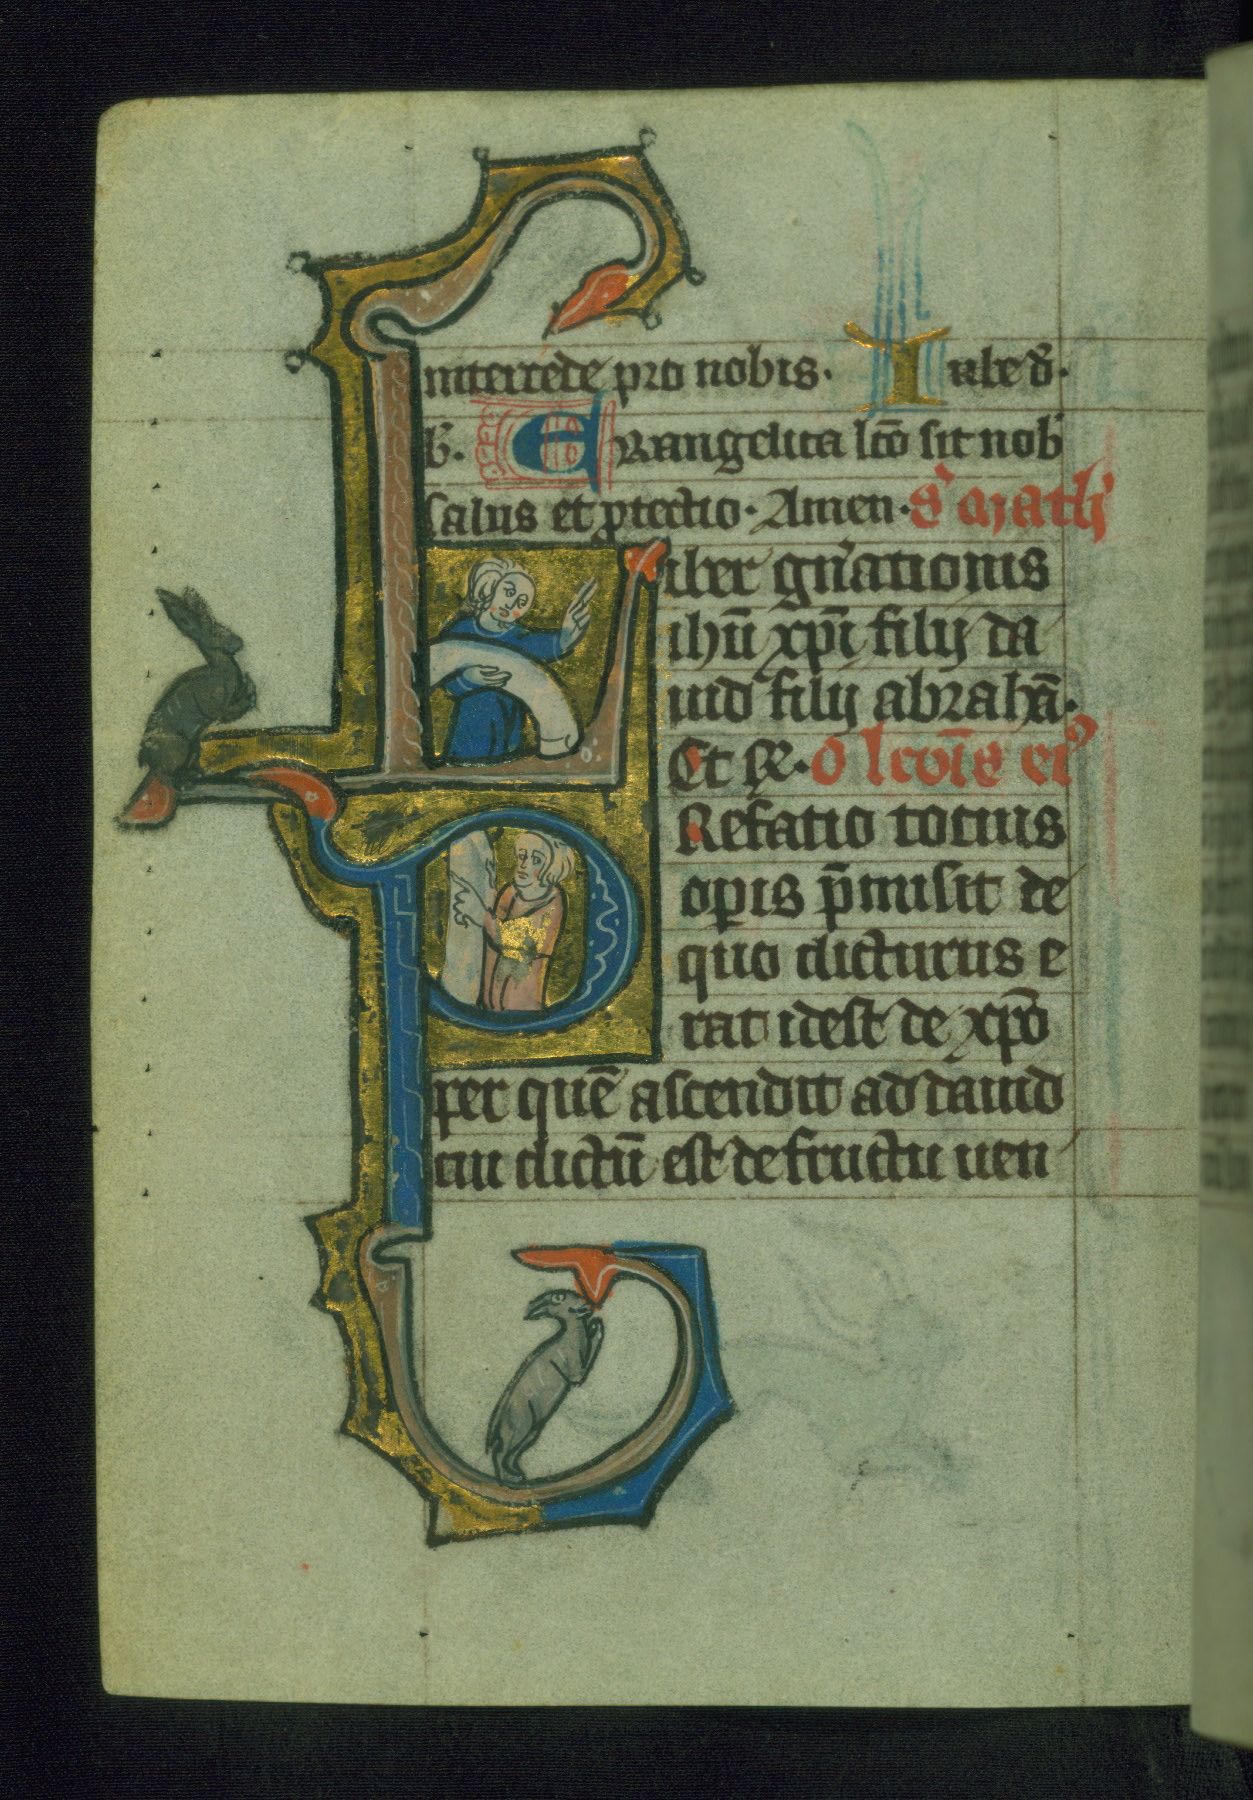 intercede pro nobis. Iube dn̄.
b̄. Euangelica lc̄o sit nob̄
salus et ꝓtectio. Amen. S' math'
Liber gn̄ationis
ihū xp̄i filij da
uid filij abrahā.
Et se. O lcōīs ei᷒
Prefatio tocius
oꝑis p̄misit de
quo dicturus e
rat idest de xp̄o
per quē ascendit ad dauid
cui dictū est de fructu uen